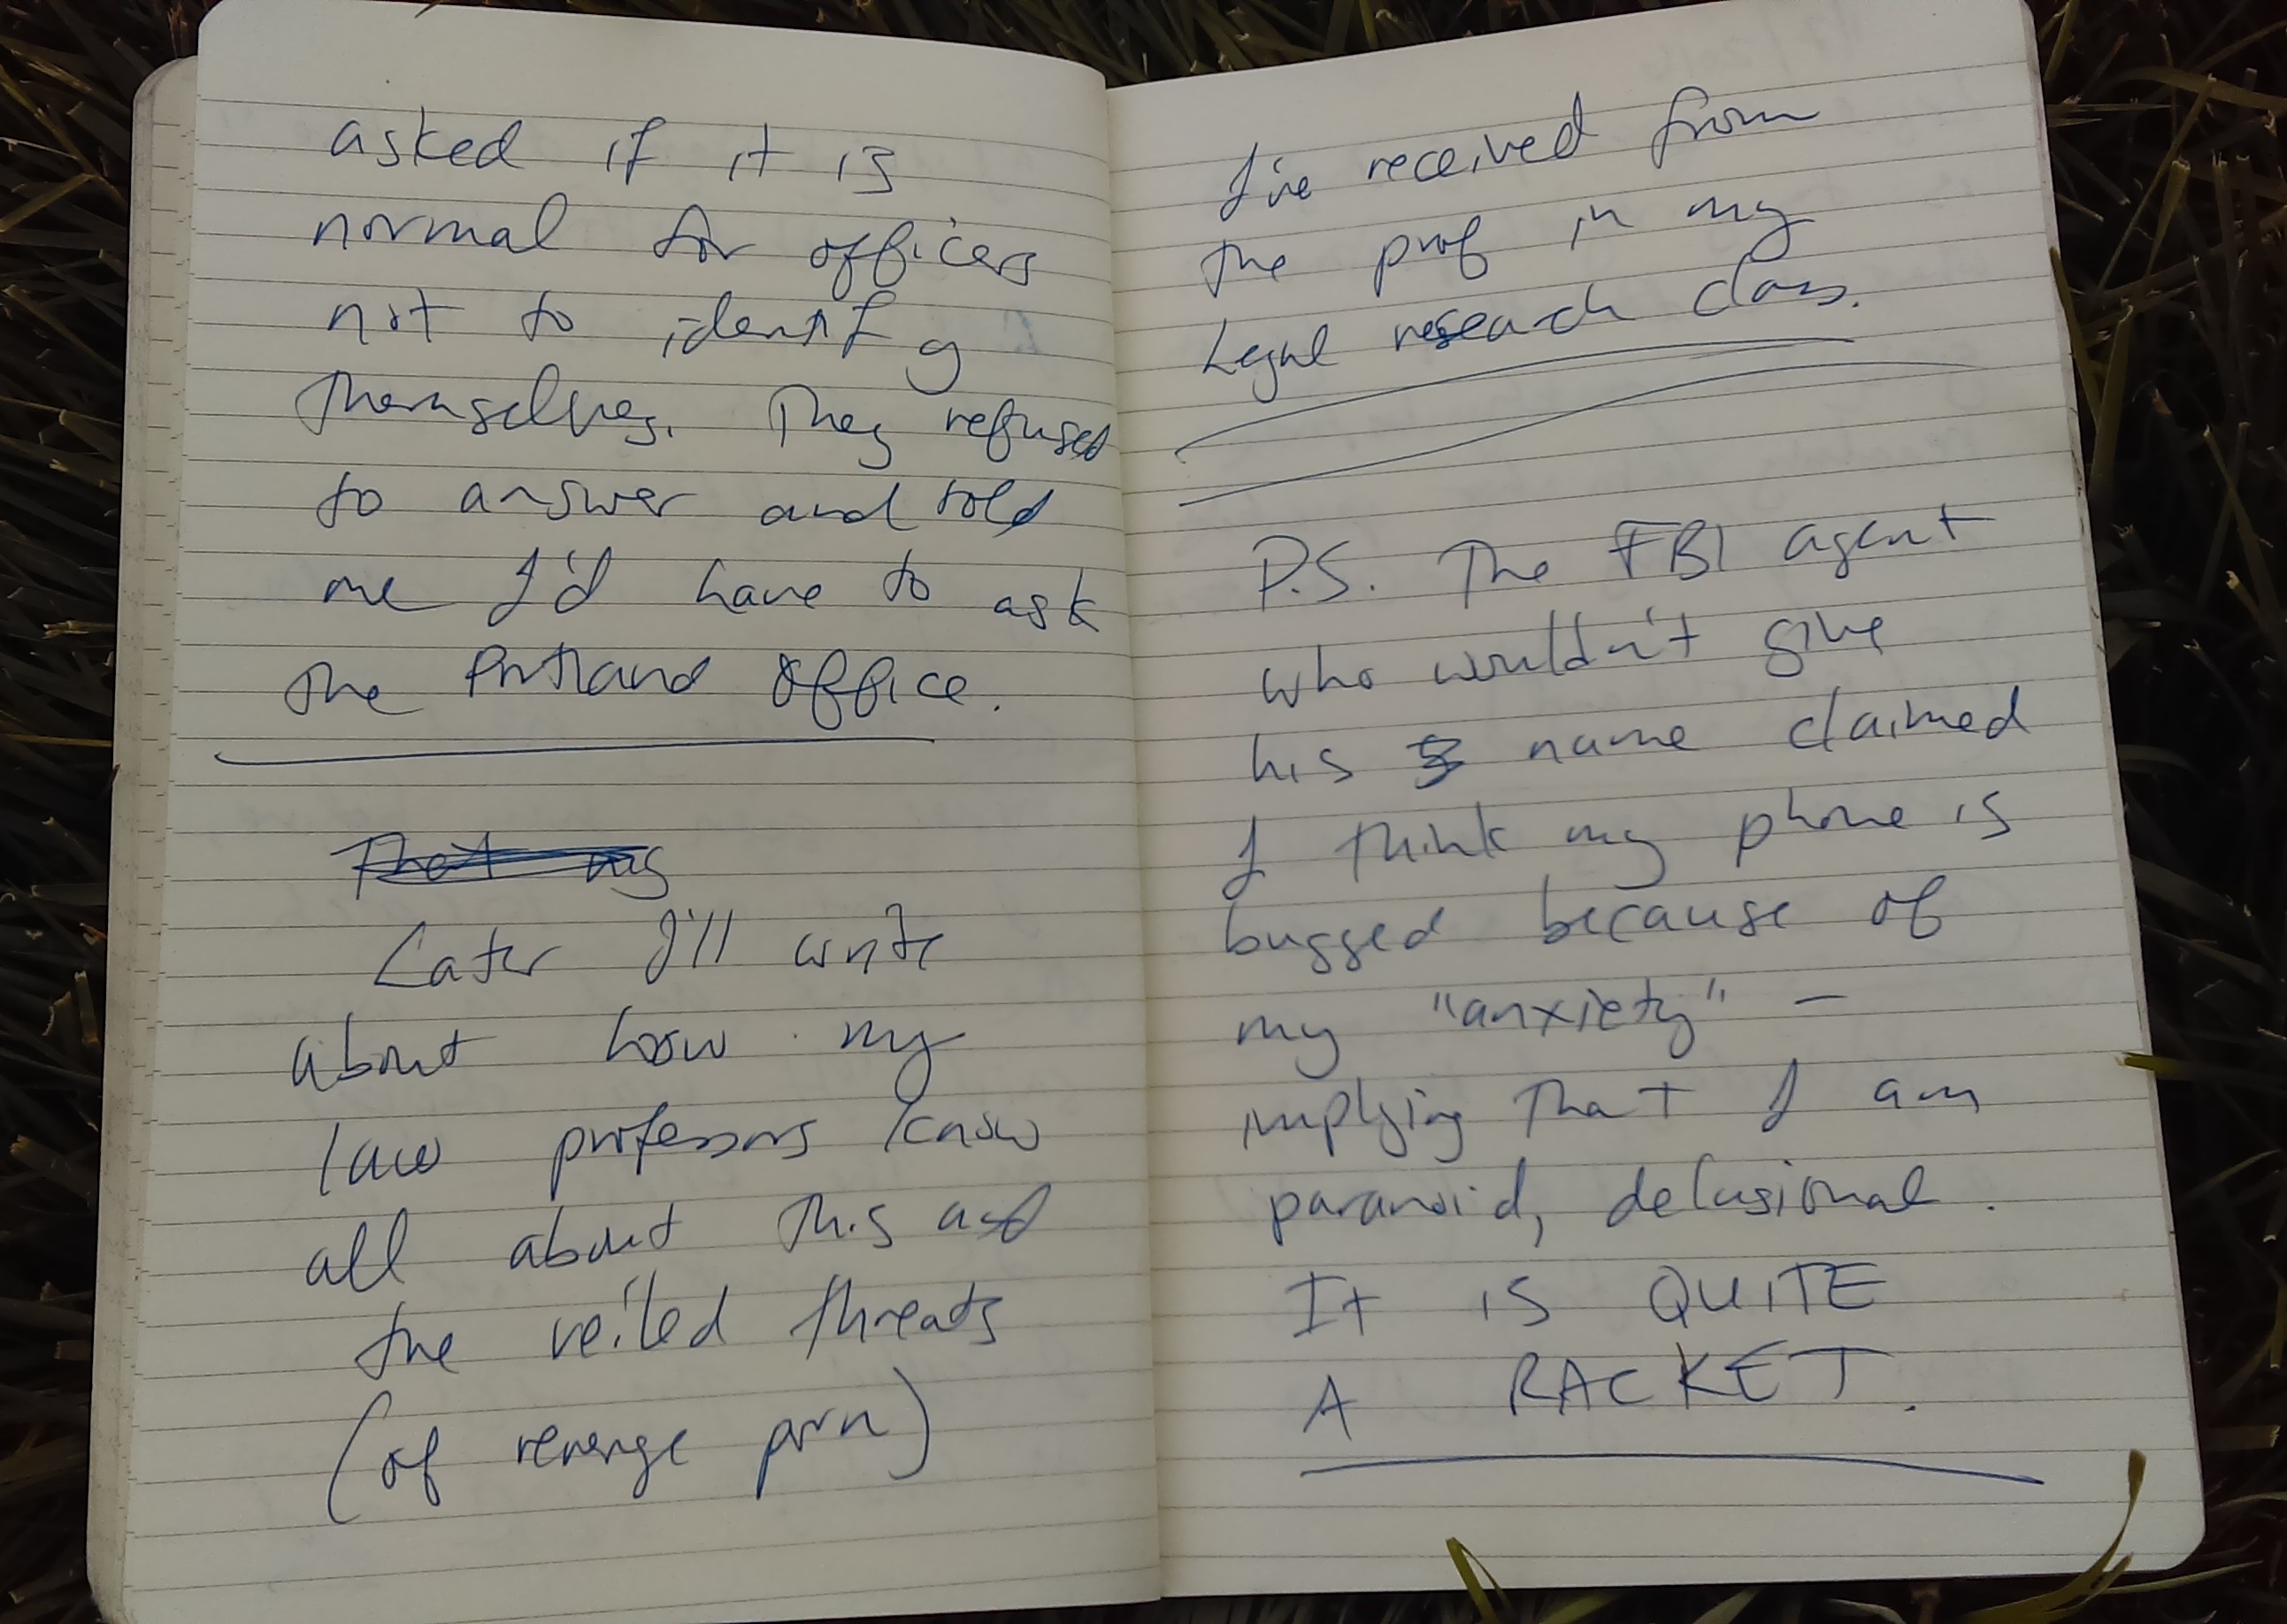 asked if it is
normal for officers
not to identify
themselves. They refused
to answer and told
me I'd have to ask
the Portland office.
That my
Later I'll write
about how my
law professors know
all about this and
the veiled threats
(of revenge porn)
I've received from
the prof in my
Legal research class.
P.S. The FBI agent
who wouldn't give
his name claimed
I think my phone is
bugged because of
my "anxiety" -
implying that I am
paranoid, delusional.
It is QUITE
A RACKET.